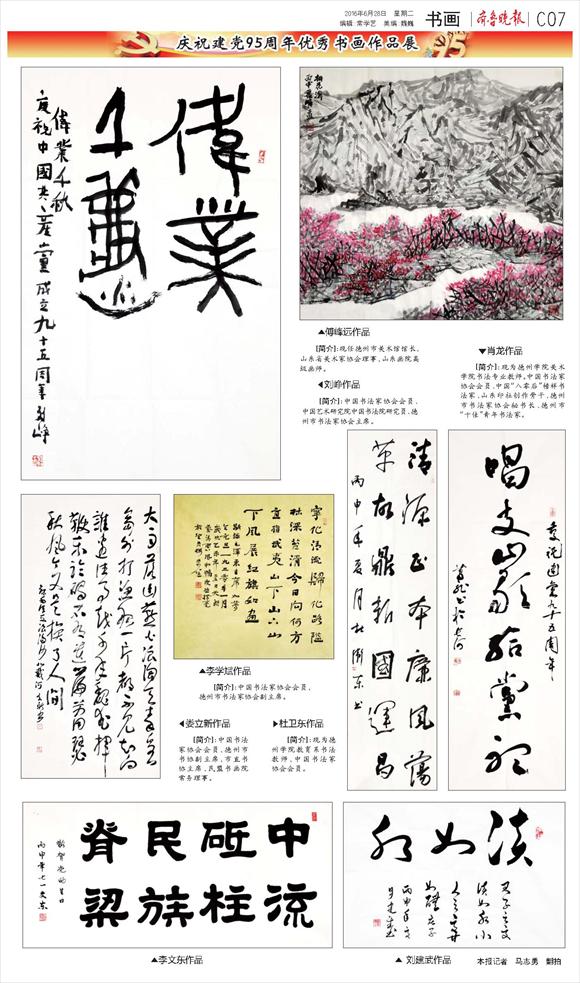 2016年6月28日 星期二
编辑 常学艺 美编 魏巍
书画
齐鲁晚报
C07
庆祝建党95周年优秀书画作品展
95
偉業
千秋
偉業千秋
慶祝中國共產黨成立九十五周年 刘峰
▲傅峰远作品
[简介]:现任德州市美术馆馆长,
山东省美术家协会理事,山东画院高
级画师。
◀刘峥作品
[简介]:中国书法家协会会员,
中国艺术研究院中国书法院研究员,德
州市书法家协会主席。
▼肖龙作品
[简介]:现为德州学院美术
学院书法专业教师,中国书法家
协会会员,中国“八零后”榜样书
法家,山东印社创作骨干,德州
市书法家协会副秘书长,德州市
“十佳”青年书法家。
大雨落幽燕 白浪滔天 秦皇
島外打漁船 一片都不見 知向
誰邊 往事越千年 魏武揮
鞭 東臨碣石有遺篇 蕭瑟
秋風今又是 換了人間
寧化清流歸化 路隘
林深苔滑 今日向何方
直指武夷山下 山下山下
風展紅旗如畫
清源正本廉風蕩
革故鼎新國運昌
丙申年夏月杜衛東书
唱支山歌給黨聽
慶祝建黨九十五周年
▲李学斌作品
[简介]:中国书法家协会会员、
德州市书法家协会副主席。
◀娄立新作品
[简介]:中国书法
家协会会员,德州市
书协副主席,市直书
协主席,民盟书画院
常务理事。
▶杜卫东作品
[简介]:现为德
州学院教育系书法
教师,中国书法家
协会会员。
中流
砥柱
民族
脊梁
敬賀党的生日
丙申年七一文东
淡如水
君子之交
淡如水小
人之交甘
如醴
▲李文东作品
▲ 刘建武作品
本报记者 马志勇 翻拍